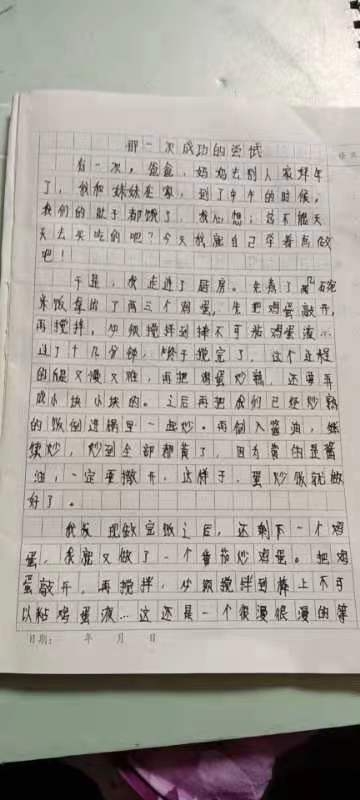 那一次成功的尝试
有一次，爸爸、妈妈去别人家拜年
了，我和妹妹在家，到了中午的时候，
我们的肚子都饿了，我心想：总不能天
天去买吃的吧？今天我就自己学着点做
吧！
于是，我走进了厨房。先煮了
米饭拿出了两三个鸡蛋，先把鸡蛋敲开，
再搅拌，必须搅拌到棒不可粘鸡蛋液
过了十几分钟，终于搅完了，这个过程
的促又慢又难，再把鸡蛋炒熟，还要弄
成小块小块的。之后再把我们已经炒熟
的饭倒进锅里一起炒。再倒入酱油，继
续炒，炒到全部都黄了，因为黄的是酱
油，一定要撒开，这样子，蛋炒饭就做
好了。
我发现做完饭之后，还剩下一个鸡
蛋，我就又做了一个番茄炒鸡蛋。把鸡
蛋敲开，再搅拌，必须搅拌到棒上不可
以粘鸡蛋液…这还是一个很漫很漫的等
日期： 年 月 日